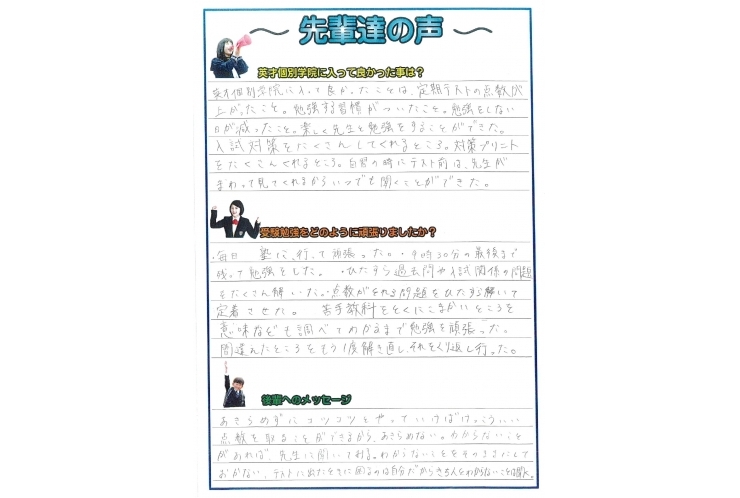 先輩達の声
英才個別学院に入って良かった事は？
英才個別学院に入って良かったことは、定期テストの点数が
上がったこと。勉強する習慣がついたこと。勉強をしない
日が減ったこと。楽しく先生と勉強をすることができた。
入試対策をたくさんしてくれるところ。対策プリント
をたくさんくれるところ。自習の時にテスト前は、先生が
まわって見てくれるからいつでも聞くことができた。
受験勉強をどのように頑張りましたか？
・毎日 塾に行って頑張った。・9時30分の最後まで
残って勉強をした。 ・ひたすら過去問や入試関係の問題
をたくさん解いた。・点数がとれる問題をひたすら解いて
定着させた。 苦手教科をとくにこまかいところを
意味なども調べてわかるまで勉強を頑張った。
間違えたところをもう1度解き直し、それをくり返し行った。
後輩へのメッセージ
あきらめずにコツコツとやっていけばけっこういい
点数を取ることができるから、あきらめない。わからないこと
があれば、先生に聞いてみる。わからないことをそのままにして
おかない、テストに出たときに困るのは自分だからきちんとわからないことは聞く。